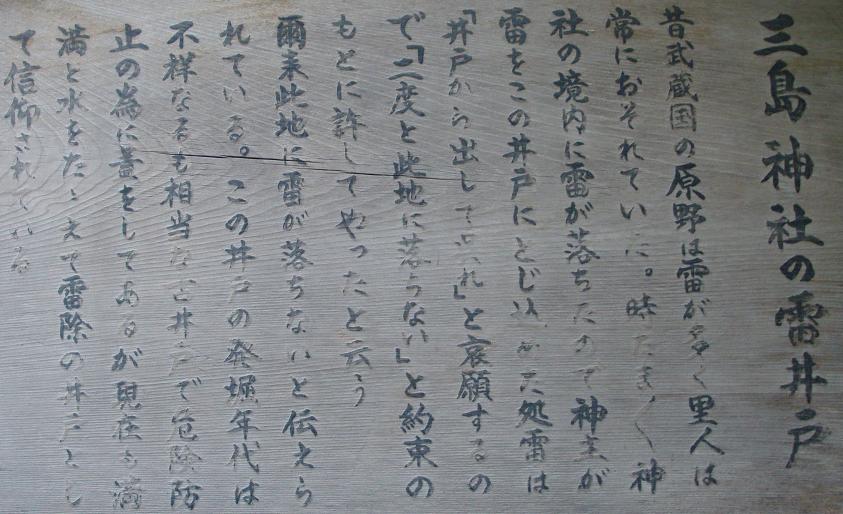 三島神社の雷井戸
昔武蔵国の原野は雷が多く里人は
常におそれていた。時たま〱神
社の境内に雷が落ちたので神主が
雷をこの井戸にとじ込めた処雷は
「井戸から出して呉れ」と哀願するの
で「二度と此地に落らない」と約束の
もとに許してやったと云う
爾来此地に雷が落ちないと伝えら
れている。この井戸の発堀年代は
不祥なるも相当な古井戸で危険防
止の為に蓋をしてあるが現在も満
満と水をたゝえて雷除の井戸とし
て信仰されている